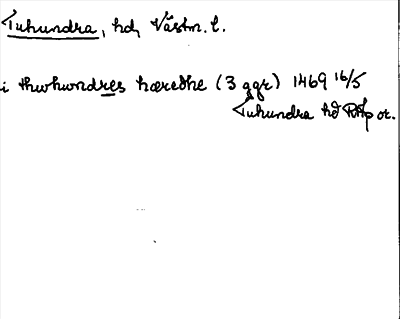 Tuhundra, hd, Västm. l.
i thwhwndres hæredhe (3 ggr) 1469 16/5
Tuhundra hd RAp or.